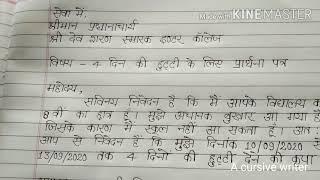 सेवा में,
Made with KINEMASTER
श्रीमान प्रधानाचार्य
श्री देव शरण स्मारक इण्टर कॉलेज
विषय - 4 दिन की छुट्टी के लिए प्रार्थना पत्र
महोदय,
सविनय निवेदन है कि मैं आपके विद्यालय क
8 वीं का छात्र हूँ। मुझे अचानक बुखार आ गया है
जिसके कारण मैं स्कूल नहीं आ सकता हूँ। अतः
आप से निवेदन है कि मुझे दिनांक 10/09/2020 से
13/09/2020 तक 4 दिनों की छुट्टी देने की कृपा
A cursive writer